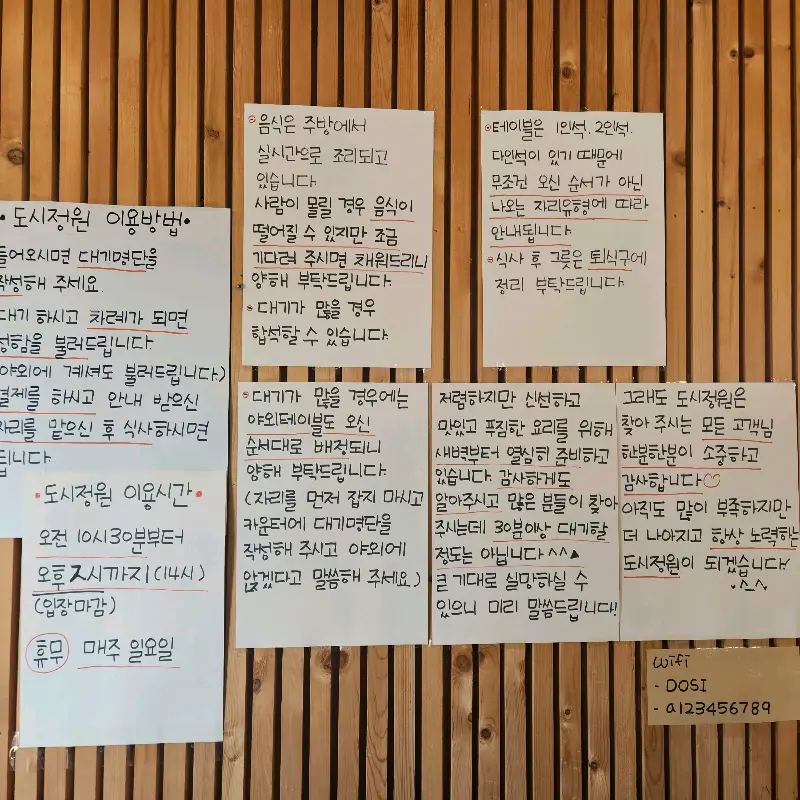 • 도시정원 이용방법 •
들어오시면 대기명단을
작성해 주세요.
대기 하시고 차례가 되면
성함을 불러드립니다.
야외에 계셔도 불러드립니다)
결제를 하시고 안내 받으신
자리를 맡으신 후 식사하시면
됩니다.
• 도시정원 이용시간 •
오전 10시30분부터
오후 2시까지(14시)
(입장마감)
휴무 매주 일요일
음식은 주방에서
실시간으로 조리되고
있습니다.
사람이 몰릴 경우 음식이
떨어질 수 있지만 조금
기다려 주시면 채워드리니
양해 부탁드립니다.
대기가 많을 경우
합석할 수 있습니다.
테이블은 1인석, 2인석,
다인석이 있기 때문에
무조건 오신 순서가 아닌
나오는 자리유형에 따라
안내됩니다.
식사 후 그릇은 퇴식구에
정리 부탁드립니다.
대기가 많을 경우에는
야외테이블도 오신
순서대로 배정되니
양해 부탁드립니다.
(자리를 먼저 잡지 마시고
카운터에 대기명단을
작성해 주시고 야외에
앉겠다고 말씀해 주세요.)
저렴하지만 신선하고
맛있고 푸짐한 요리를 위해
새벽부터 열심히 준비하고
있습니다. 감사하게도
알아주시고 많은 분들이 찾아
주시는데 30분이상 대기할
정도는 아닙니다 ^^
큰 기대로 실망하실 수
있으니 미리 말씀드립니다!
그래도 도시정원은
찾아 주시는 모든 고객님
한분한분이 소중하고
감사합니다♡
아직도 많이 부족하지만
더 나아지고 항상 노력하는
도시정원이 되겠습니다!
^^
wifi
- DOSI
- a123456789